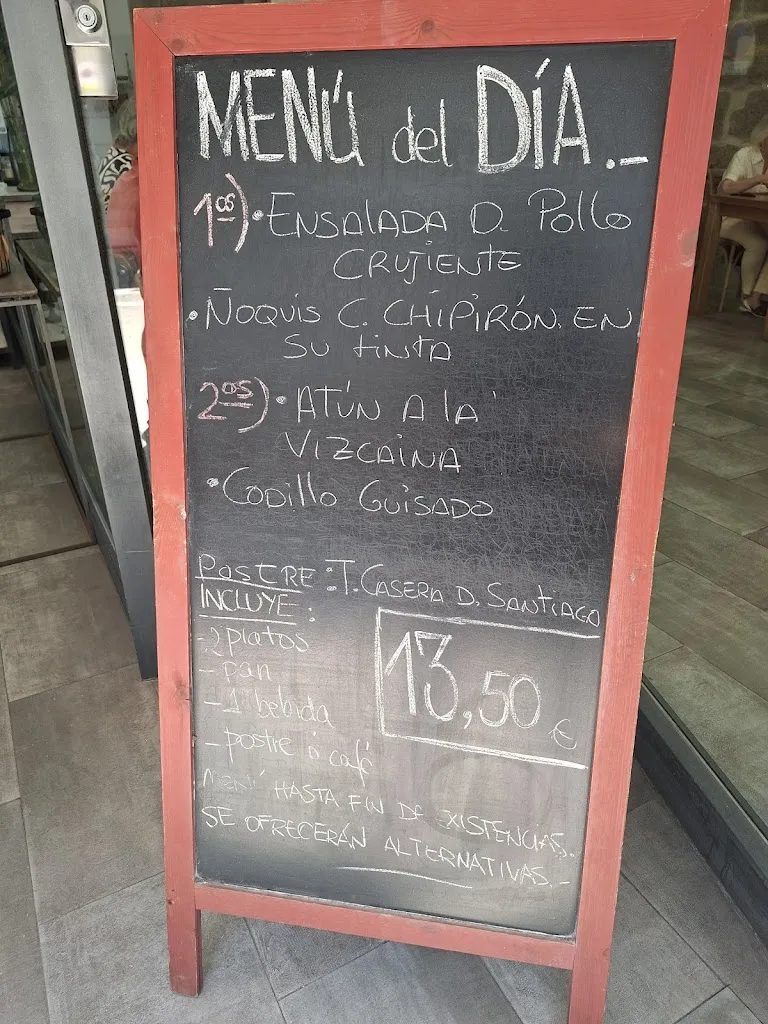 MENÚ del DÍA.-
1os)·ENSALADA D. POLLO
CRUJIENTE
·ÑOQUIS C. CHIPIRÓN. EN
SU tINtA
2os)·ATÚN A lA
VIZCAINA
·CODILLO GUISADO
POSTRE : T. CASERA D. SANTIAGO
INCLUYE :
- 2 platos
- pan
- 1 bebida
- postre ó café
13,50 €
MENÚ HASTA FIN DE EXISTENCIAS.
SE OFRECERÁN ALTERNATIVAS.-